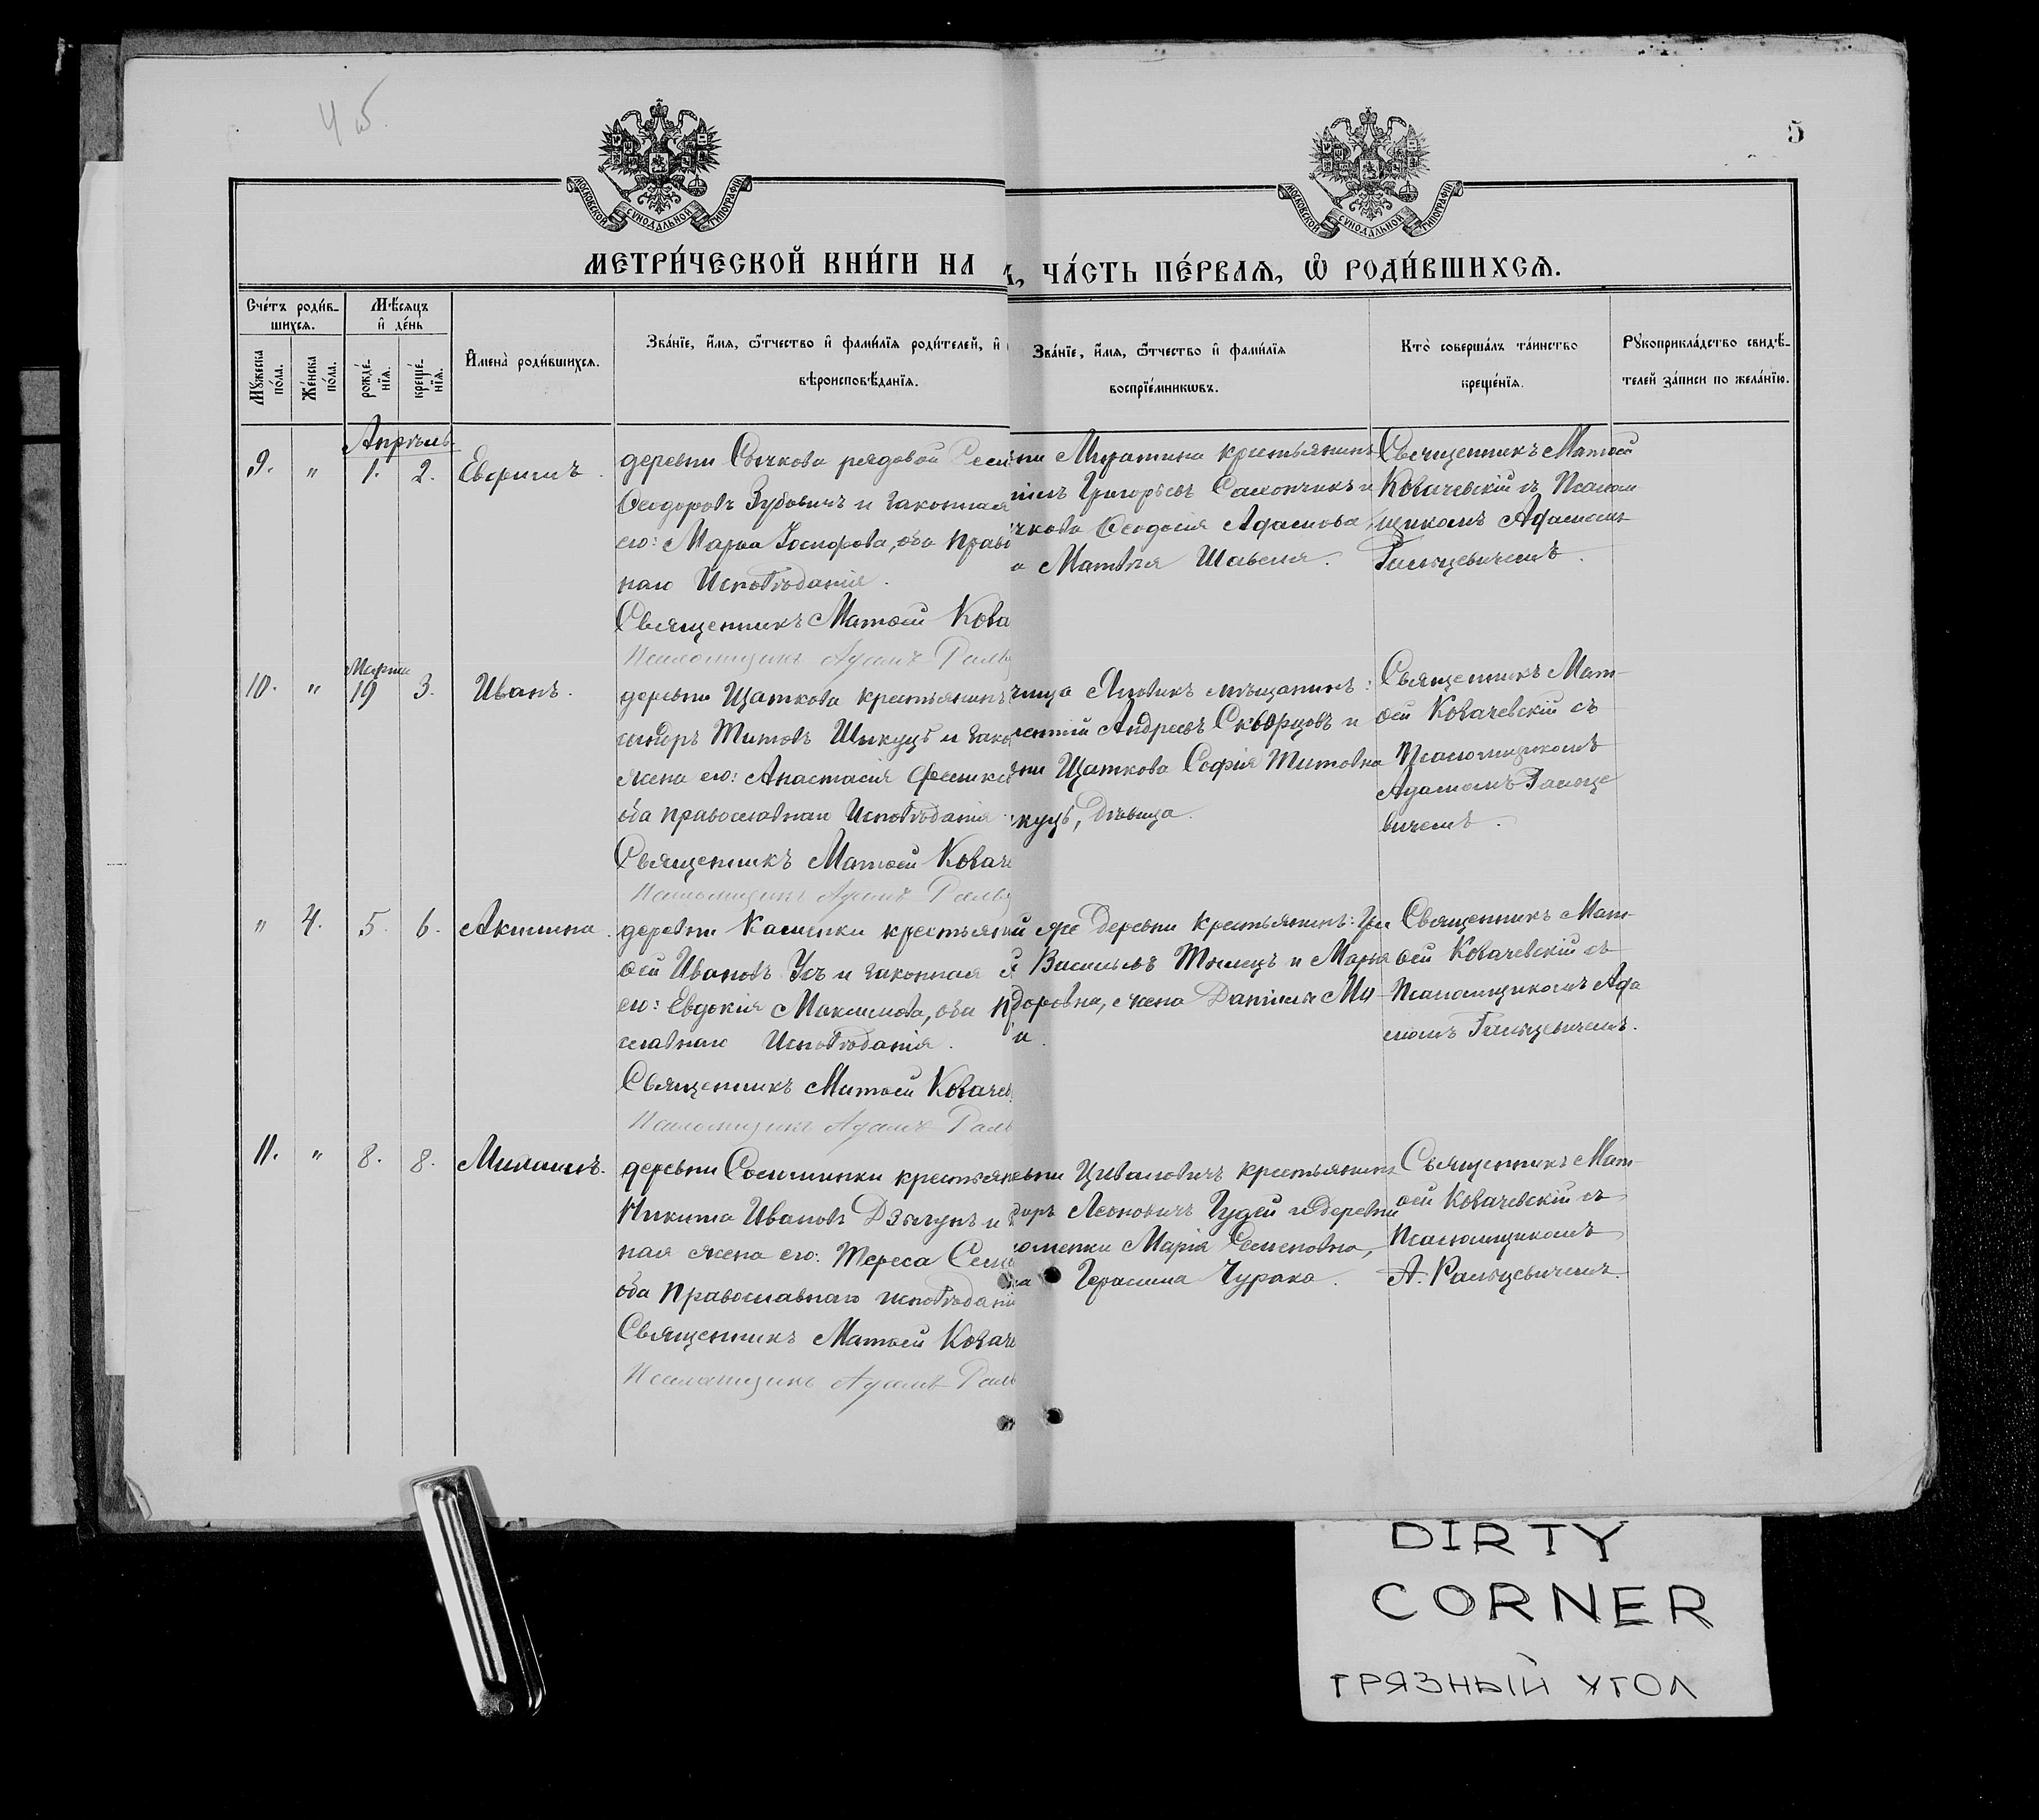 4 об.
5
МОСКОВСКОЙ СѴНОДАЛЬНОЙ ТИПОГРАФІИ
МОСКОВСКОЙ СѴНОДАЛЬНОЙ ТИПОГРАФІИ
МЕТРИ́ЧЕСКОЙ КНИ́ГИ НА
, ЧА́СТЬ ПЕ́РВАѦ, Ѽ РОДИ́ВШИХСѦ.
Сче́тъ роди́в-
шихсѧ.
Мꙋ́жеска
по́ла.
Же́нска
по́ла.
Мѣ́сѧцъ
и҆ де́нь
рожде́-
нїѧ.
креще́-
нїѧ.
И҆мена̀ роди́вшихсѧ.
Зва́нїе, и҆́мѧ, ѻ҆́тчество и҆ фами́лїѧ роди́телей, и҆
вѣроисповѣ́данїѧ.
Зва́нїе, и҆́мѧ, ѻ҆́тчество и҆ фами́лїѧ
воспрїе́мникѡвъ.
Кто̀ соверша́лъ та́инство
креще́нїѧ.
Рꙋкоприкла́дство свидѣ́-
телей за́писи по жела́нїю.
Апрѣль
9. " 1. 2. Евфимъ.
деревни Сычкова рядовой
Ѳеодоровъ Зубовичъ и законная
его: Марѳа, оба Право
наго Исповѣданія.
Священникъ Матѳей Кова
Псаломщикъ Адамъ
крестьянинъ
Григорьевъ и
чкова Ѳеодосія Адамова
Матвѣя Шавеля.
Священникъ Матѳей
Ковачевскій съ Псалом
щикомъ Адамомъ
Гальцевичемъ.
Марта
10. " 19 3. Иванъ.
деревни Щаткова крестьянинъ
Титовъ Шикуць и зако
жена его: Анастасія
оба православнаго Исповѣданія
Священникъ Матѳей Коваче
Псаломщикъ Адамъ
мѣщанинъ:
Андреевъ Скворцовъ и
вни Щаткова Софія Титовна
куць, Дѣвица.
Священникъ Мат-
ѳей Ковачевскій съ
Псаломщикомъ
Адамомъ Гальце
вичемъ.
" 4. 5. 6. Акилина.
деревни Каменки крестьян
ѳей Ивановъ Усъ и законная
его: Евдокія Максимова, оба пр
славнаго Исповѣданія.
Священникъ Матѳей Ковачев
Псаломщикъ Адамъ
й же деревни крестьянинъ:
Васильевъ и Марія
доровна, жена Даніила
Священникъ Мат-
ѳей Ковачевскій съ
Псаломщикомъ Ада
момъ Гальцевичемъ.
11. " 8. 8. Михаилъ.
деревни крестьян
Никита Ивановъ и
ная жена его: Тереса
оба Православнаго исповѣдані
Священникъ Матѳей Коваче
Псаломщикъ Адамъ
евни крестьянинъ
Леоновичъ и деревни
оменки Марія Семеновна,
на Герасима Чурака.
Священникъ Мат-
ѳей Ковачевскій съ
Псаломщикомъ
А. Гальцевичемъ.
DIRTY
CORNER
ГРЯЗНЫЙ УГОЛ